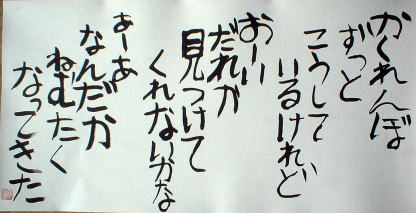 かくれんぼ
ずっと
こうして
いるけれど
おーい
だれか
見つけて
くれないかな
あーあ
なんだか
ねむたく
なってきた